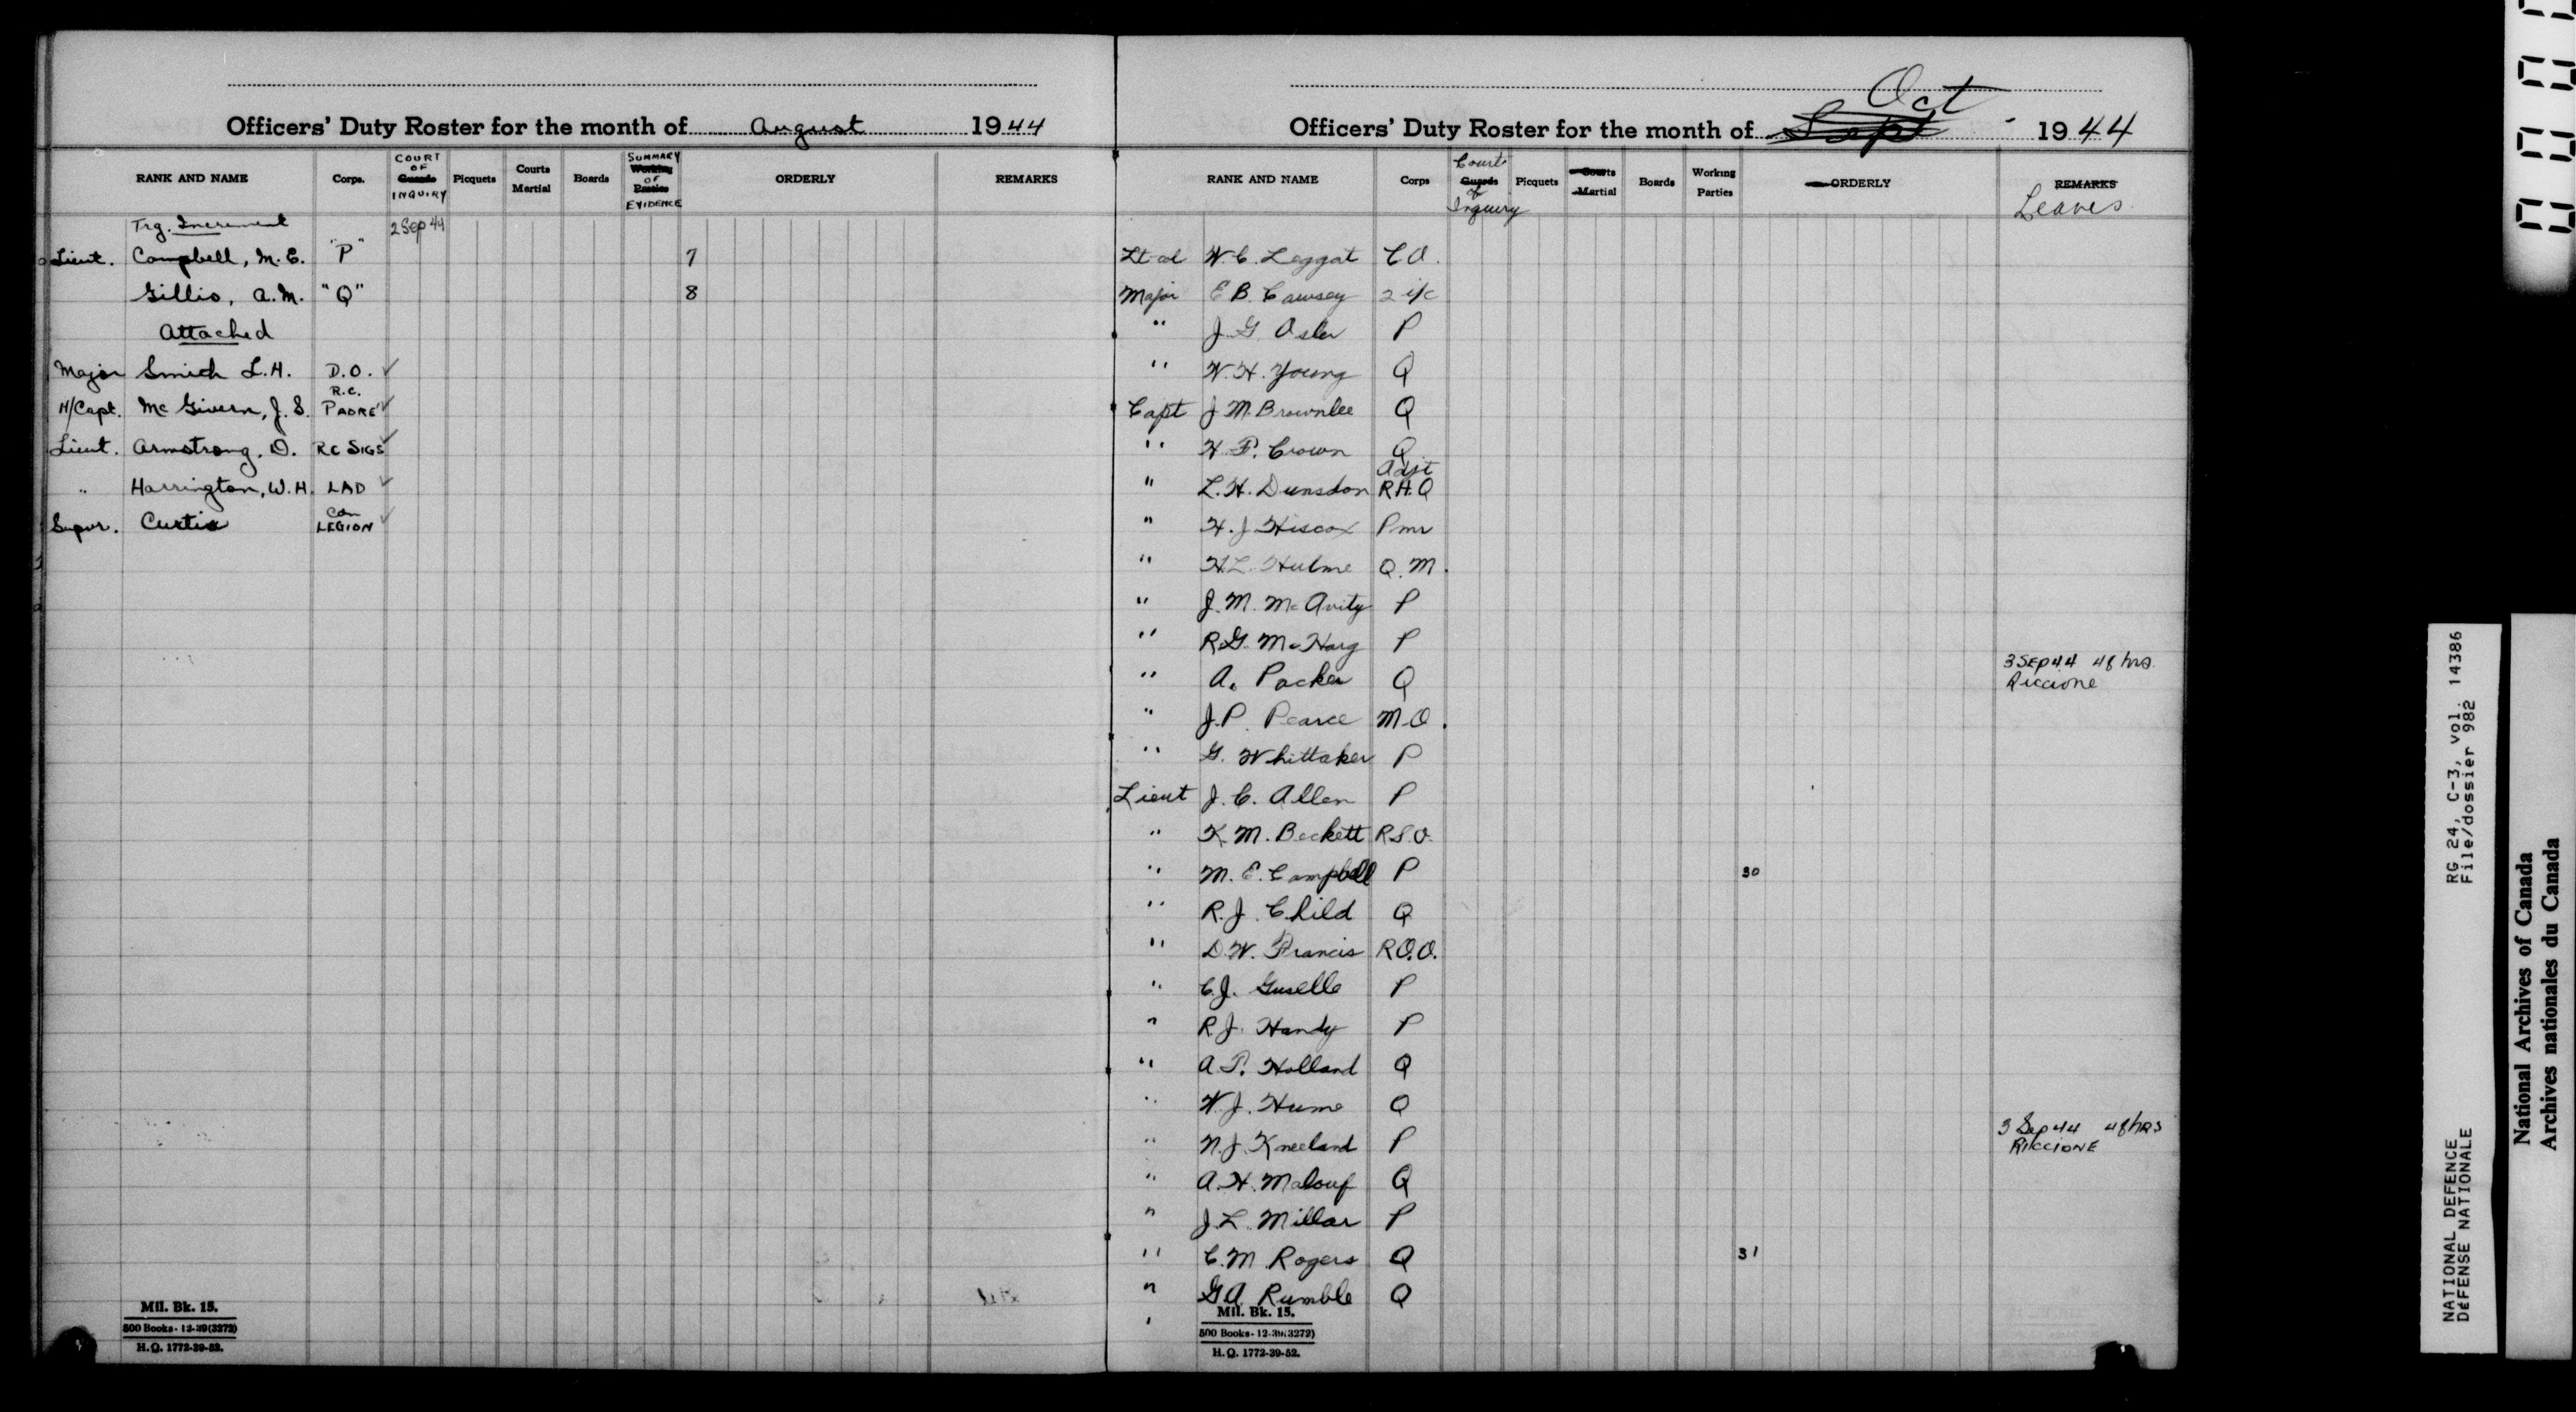 Officers' Duty Roster for the month of August 1944
RANK AND NAME Corps. COURT OF Guards INQUIRY Picquets Courts Martial Boards SUMMARY Working OF Parties EVIDENCE ORDERLY REMARKS
Trg. Increment 2 Sep 44
Lieut. Campbell, M.E. "P" 7
Gillis, A.M. "Q" 8
Attached
Major Smith L.H. D.O. ✓
H/Capt. McGivern, J.S. R.C. PADRE ✓
Lieut. Armstrong, D. RC SIGS ✓
" Harrington, W.H. LAD ✓
Supvr. Curtis Cdn LEGION ✓
Mil. Bk. 15.
500 Books-12-39(3272)
H.Q. 1772-39-52.
Officers' Duty Roster for the month of Sept Oct 1944
RANK AND NAME Corps Courts Guards of Inquiry Picquets Courts Martial Boards Working Parties ORDERLY REMARKS Leaves
Lt-col W.C. Leggat C.O.
Major E.B. Cawsey 2 i/c
" J.G. Osler P
" W.H. Young Q
Capt J.M. Brownlee Q
" H.P. Crown Q
" L.H. Dunsdon Adjt RHQ
" H.J. Hiscox Pmr
" H.L. Hulme Q.M.
" J.M. McAvity P
" R.G. McHarg P
" A. Packer Q 3 SEP 44 48 hrs. Riccione
" J.P. Pearce M.O.
" G. Whittaker P
Lieut J.C. Allen P
" K.M. Beckett R.S.O.
" M.E. Campbell P 30
" R.J. Child Q
" D.W. Francis R.O.O.
" C.J. Guselle P
" R.J. Handy P
" A.P. Holland Q
" W.J. Hume Q
" N.J. Kneeland P 3 Sep 44 48 HRS RICCIONE
" A.H. Malouf Q
" J.L. Millar P
" C.M. Rogers Q 31
" G.A. Rumble Q
Mil. Bk. 15.
500 Books-12-39(3272)
H.Q. 1772-39-52.
NATIONAL DEFENCE RG 24, C-3, vol. 14386
DÉFENSE NATIONALE File/dossier 982
National Archives of Canada
Archives nationales du Canada